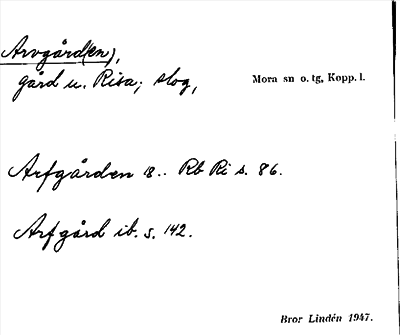 Arvgård(en),
gård u. Risa; slog,
Mora sn o. tg, Kopp. l.
Arfgården 18.. Rb Ri s. 86.
Arfgård ib. s. 142.
Bror Lindén 1947.